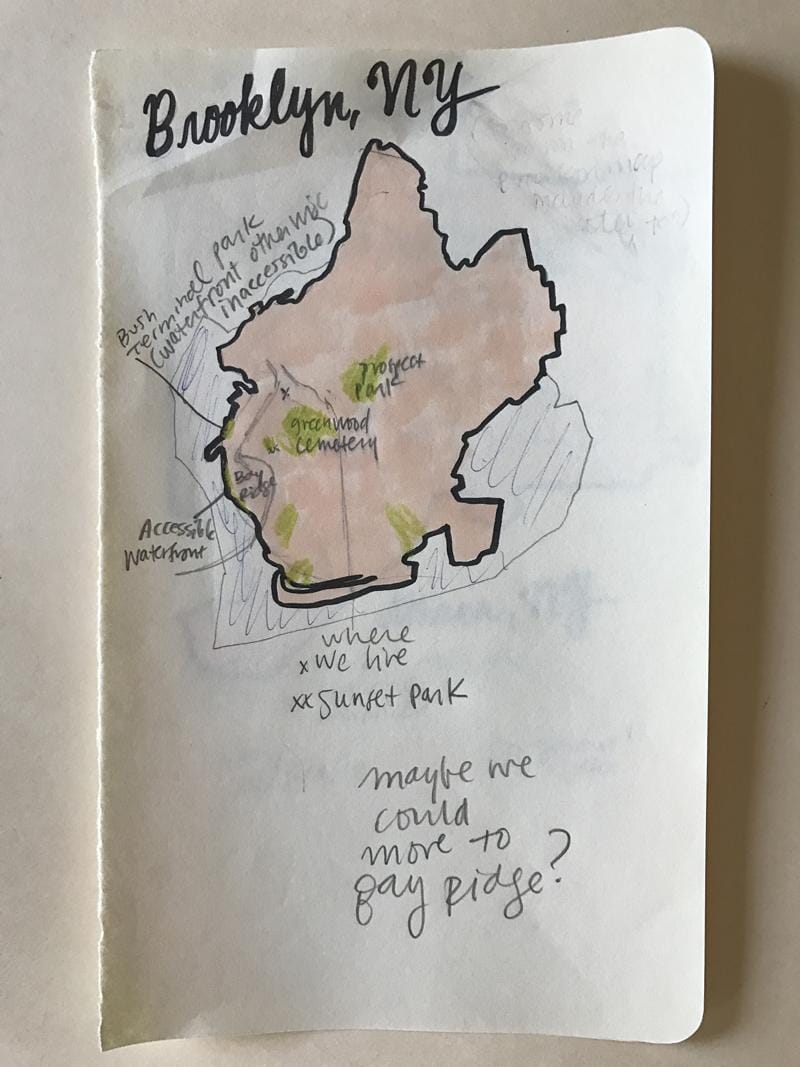 Brooklyn, NY
Bush
Terminal park
(waterfront otherwise
inaccessible)
prospect
park
x
greenwood
cemetery
xx
Bay
Ridge
Accessible
waterfront
where
x we live
xx Sunset Park
maybe we
could
move to
Bay Ridge?